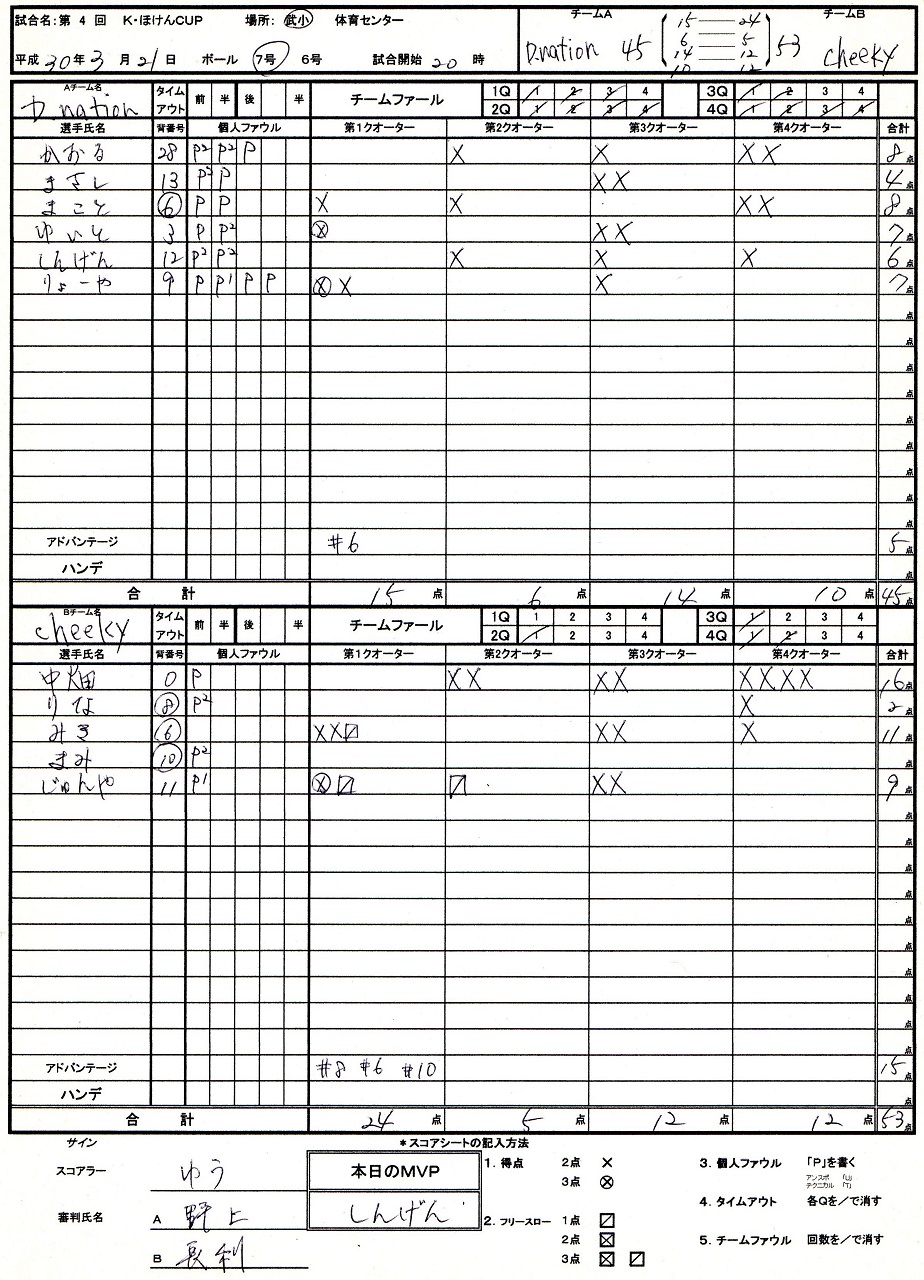 試合名:第 4 回 K・ほけんCUP 場所: 武小 体育センター チームA チームB
平成 30年 3月 21日 ボール 7号 6号 試合開始 20 時 D.nation 45 53 cheeky
15 — 24
6 — 5
14 — 12
10 12
Aチーム名 D.nation タイムアウト 前 半 後 半 チームファール 1Q 1 2 3 4 3Q 1 2 3 4
2Q 1 2 3 4 4Q 1 2 3 4
選手氏名 背番号 個人ファウル 第1クオーター 第2クオーター 第3クオーター 第4クオーター 合計
かおる 28 P2 P2 P X X XX 8点
まさし 13 P2 P XX 4点
まこと 6 P P X X XX 8点
ゆいと 3 P P2 ⊗ XX 7点
しんげん 12 P2 P2 X X X 6点
りょーや 9 P P1 P P ⊗ X X 7点
アドバンテージ #6 5点
ハンデ 点
合 計 15点 6点 14点 10点 45点
Bチーム名 cheeky タイムアウト 前 半 後 半 チームファール 1Q 1 2 3 4 3Q 1 2 3 4
2Q 1 2 3 4 4Q 1 2 3 4
選手氏名 背番号 個人ファウル 第1クオーター 第2クオーター 第3クオーター 第4クオーター 合計
中畑 0 P XX XX XXXX 16点
りな 8 P2 X 2点
みき 6 XX⧄ XX X 11点
まみ 10 P2 点
じゅんや 11 P1 ⊗⧄ ⧄ XX 9点
アドバンテージ #8 #6 #10 15点
ハンデ 点
合 計 24点 5点 12点 12点 53点
サイン *スコアシートの記入方法
スコアラー ゆう
審判氏名 A 野上
B 長利
本日のMVP
しんげん
1. 得点 2点 ×
3点 ⊗
2. フリースロー 1点 ⧄
2点 ☒
3点 ☒ ⧄
3. 個人ファウル 「P」を書く
アンスポ 「U」
テクニカル 「T」
4. タイムアウト 各Qを/で消す
5. チームファウル 回数を/で消す